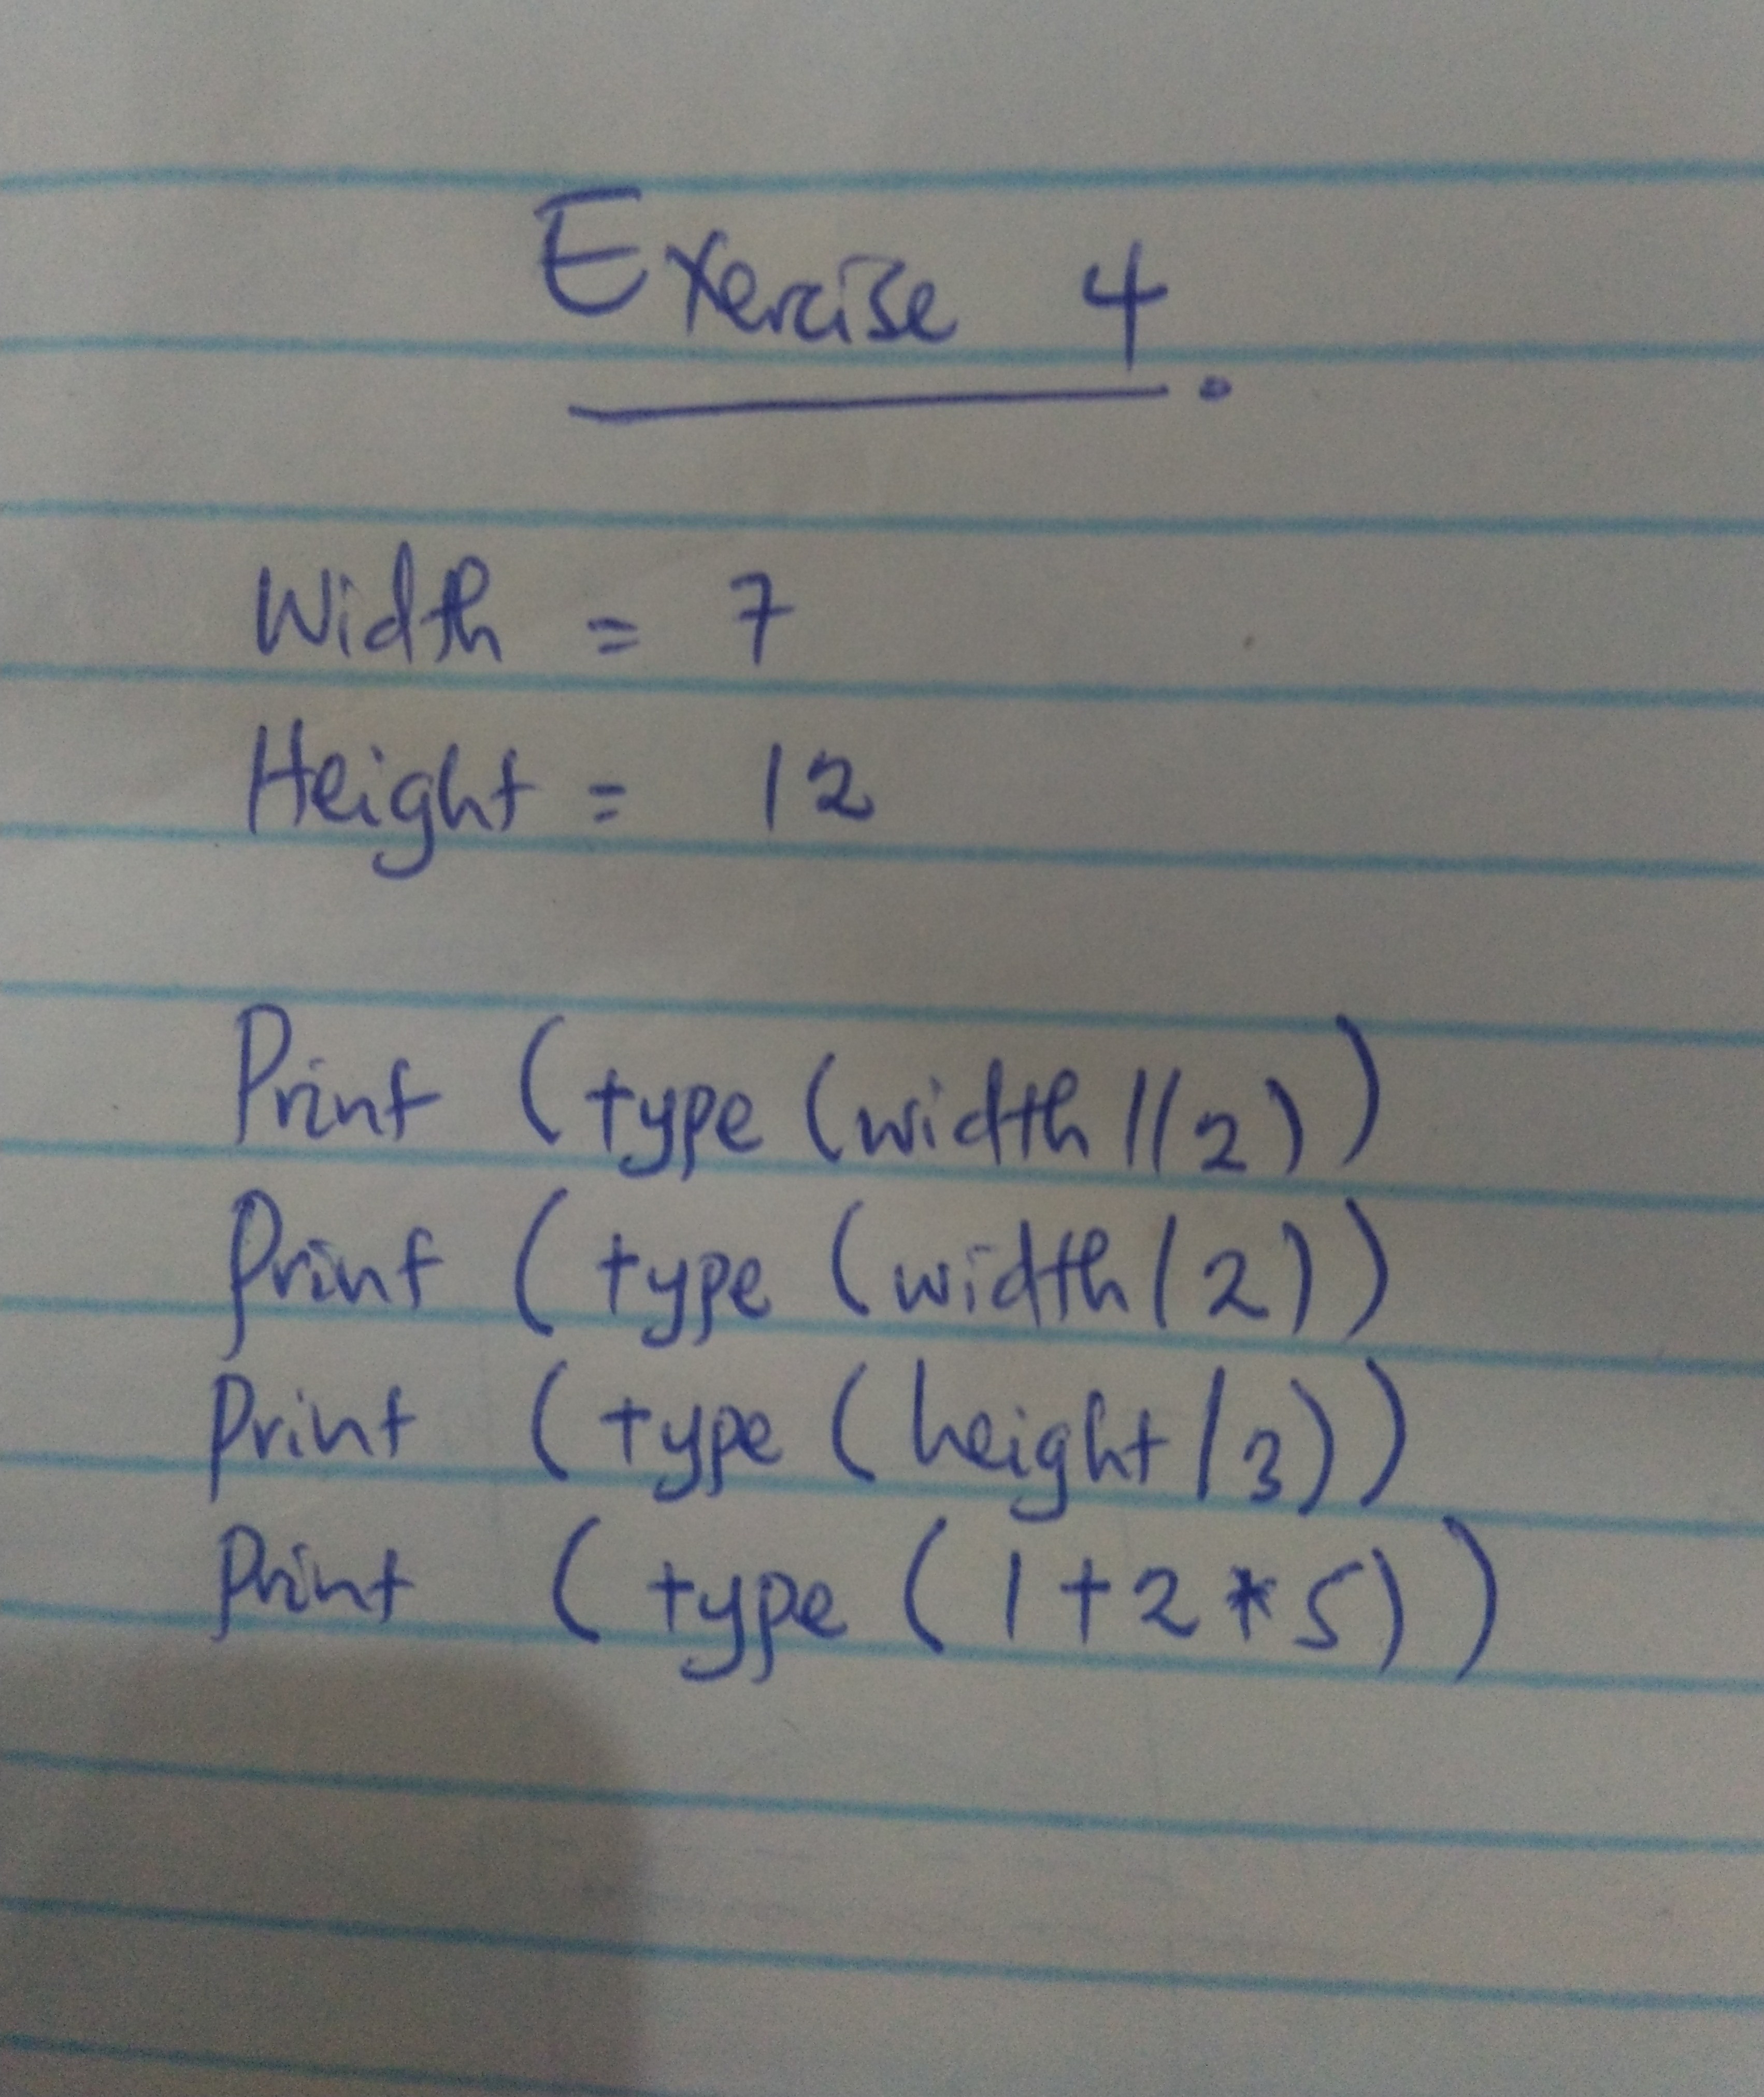 Exercise 4.
Width = 7
Height = 12
Print (type (width //2))
Print (type (width / 2))
Print (type (height / 3))
Print (type (1+2*5))